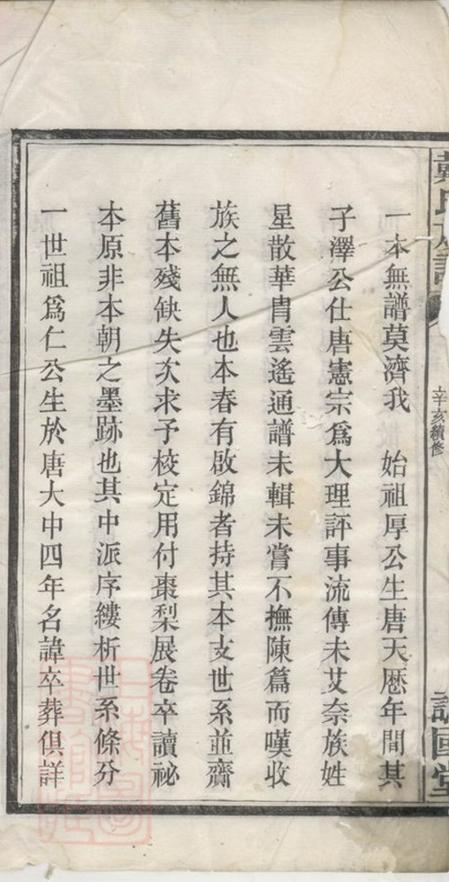 戴氏族譜
辛亥續修
譙國堂
一本無譜莫濟我　始祖厚公生唐天厯年間其
子澤公仕唐憲宗爲大理評事流傳未艾奈族姓
星散華胄雲遙通譜未輯未嘗不撫陳篇而嘆收
族之無人也本春有啟錦者持其本支世系並齋
舊本殘缺失次求予校定用付棗梨展卷卒讀祕
本原非本朝之墨跡也其中派序縷析世系條分
一世祖爲仁公生於唐大中四年名諱卒葬俱詳